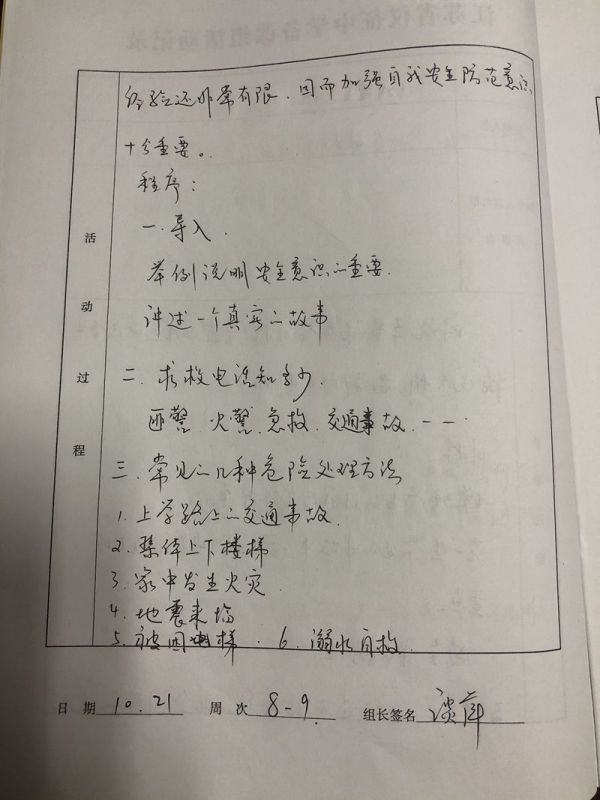 经验还非常有限，因而加强自我安全防范意识
十分重要。
程序：
一、导入
举例说明安全意识的重要
讲述一个真实的故事
二、求救电话知多少
匪警、火警、急救、交通事故、……
三、常见的几种危险处理方法
1. 上学路上的交通事故
2. 集体上下楼梯
3. 家中发生火灾
4. 地震来临
5. 被困电梯 6. 溺水自救
活动过程
日期 10.21 周次 8-9 组长签名